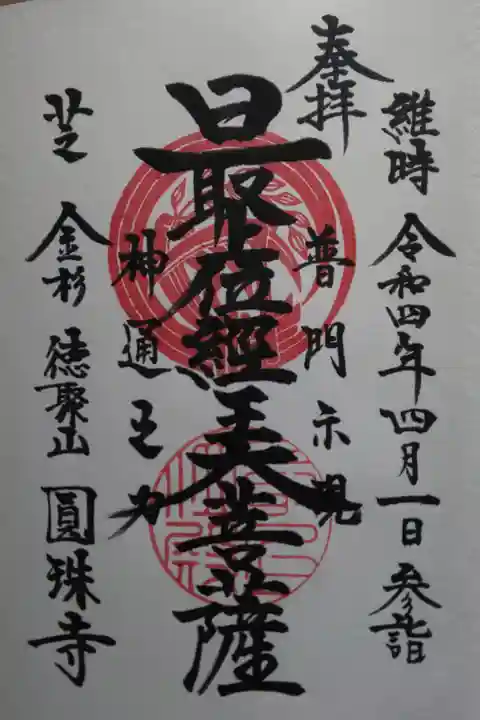 維時 令和四年四月一日参詣
奉拝
普門示現
最上位經王大菩薩
神通之力
芝 金杉 徳聚山 圓珠寺